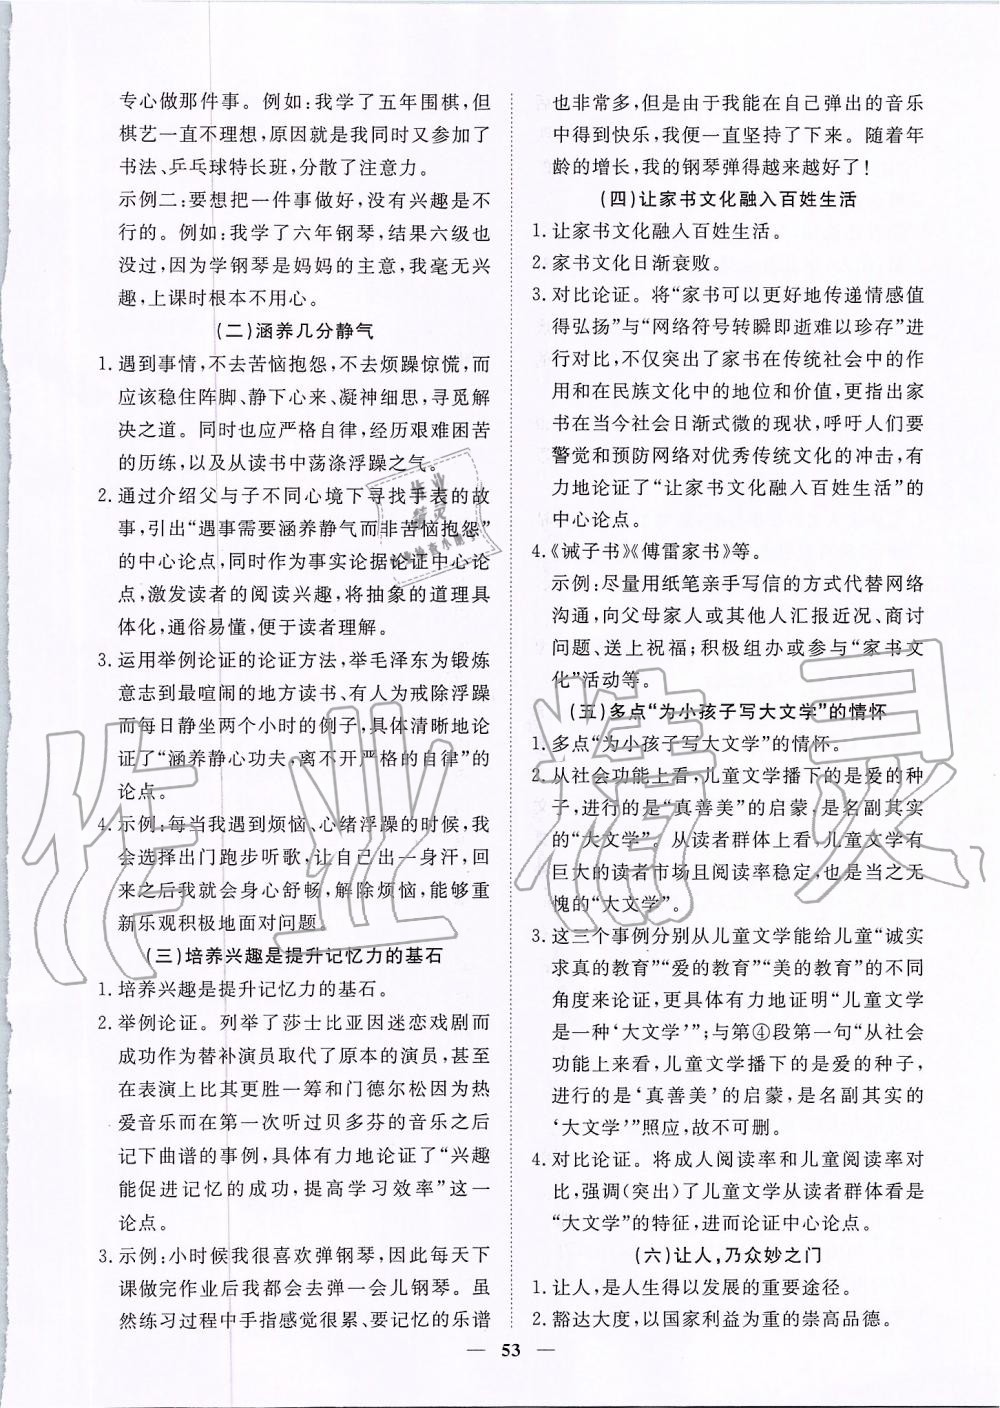 专心做那件事。例如:我学了五年围棋,但
棋艺一直不理想,原因就是我同时又参加了
书法、乒乓球特长班,分散了注意力。
示例二:要想把一件事做好,没有兴趣是不
行的。例如:我学了六年钢琴,结果六级也
没过,因为学钢琴是妈妈的主意,我毫无兴
趣,上课时根本不用心。
(二)涵养几分静气
1. 遇到事情,不去苦恼抱怨,不去烦躁惊慌,而
应该稳住阵脚、静下心来、凝神细思,寻觅解
决之道。同时也应严格自律,经历艰难困苦
的历练,以及从读书中荡涤浮躁之气。
2. 通过介绍父与子不同心境下寻找手表的故
事,引出“遇事需要涵养静气而非苦恼抱怨”
的中心论点,同时作为事实论据论证中心论
点,激发读者的阅读兴趣,将抽象的道理具
体化,通俗易懂,便于读者理解。
3. 运用举例论证的论证方法,举毛泽东为锻炼
意志到最喧闹的地方读书、有人为戒除浮躁
而每日静坐两个小时的例子,具体清晰地论
证了“涵养静心功夫,离不开严格的自律”的
论点。
4. 示例:每当我遇到烦恼、心绪浮躁的时候,我
会选择出门跑步听歌,让自己出一身汗,回
来之后我就会身心舒畅,解除烦恼,能够重
新乐观积极地面对问题。
(三)培养兴趣是提升记忆力的基石
1. 培养兴趣是提升记忆力的基石。
2. 举例论证。列举了莎士比亚因迷恋戏剧而
成功作为替补演员取代了原本的演员,甚至
在表演上比其更胜一筹和门德尔松因为热
爱音乐而在第一次听过贝多芬的音乐之后
记下曲谱的事例,具体有力地论证了“兴趣
能促进记忆的成功,提高学习效率”这一
论点。
3. 示例:小时候我很喜欢弹钢琴,因此每天下
课做完作业后我都会去弹一会儿钢琴。虽
然练习过程中手指感觉很累、要记忆的乐谱
也非常多,但是由于我能在自己弹出的音乐
中得到快乐,我便一直坚持了下来。随着年
龄的增长,我的钢琴弹得越来越好了!
(四)让家书文化融入百姓生活
1. 让家书文化融入百姓生活。
2. 家书文化日渐衰败。
3. 对比论证。将“家书可以更好地传递情感值
得弘扬”与“网络符号转瞬即逝难以珍存”进
行对比,不仅突出了家书在传统社会中的作
用和在民族文化中的地位和价值,更指出家
书在当今社会日渐式微的现状,呼吁人们要
警觉和预防网络对优秀传统文化的冲击,有
力地论证了“让家书文化融入百姓生活”的
中心论点。
4.《诫子书》《傅雷家书》等。
示例:尽量用纸笔亲手写信的方式代替网络
沟通,向父母家人或其他人汇报近况、商讨
问题、送上祝福;积极组办或参与“家书文
化”活动等。
(五)多点“为小孩子写大文学”的情怀
1. 多点“为小孩子写大文学”的情怀。
2. 从社会功能上看,儿童文学播下的是爱的种
子,进行的是“真善美”的启蒙,是名副其实
的“大文学”。从读者群体上看,儿童文学有
巨大的读者市场且阅读率稳定,也是当之无
愧的“大文学”。
3. 这三个事例分别从儿童文学能给儿童“诚实
求真的教育”“爱的教育”“美的教育”的不同
角度来论证,具体有力地证明“儿童文学
是一种‘大文学’”;与第④段第一句“从社会
功能上来看,儿童文学播下的是爱的种子,
进行的是‘真善美’的启蒙,是名副其实的
‘大文学’”照应,故不可删。
4. 对比论证。将成人阅读率和儿童阅读率对
比,强调(突出)了儿童文学从读者群体看是
“大文学”的特征,进而论证中心论点。
(六)让人,乃众妙之门
1. 让人,是人生得以发展的重要途径。
2. 豁达大度,以国家利益为重的崇高品德。
— 53 —
作业精灵
作业
精灵